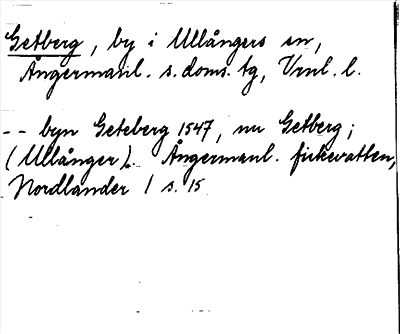 Getberg, by i Ullångers sn,
Ångermanl. s. doms. tg, Vrnl. l.
-- byn Geteberg 1547, nu Getberg;
(Ullånger). Ångermanl. fiskevatten,
Nordlander 1 s. 15